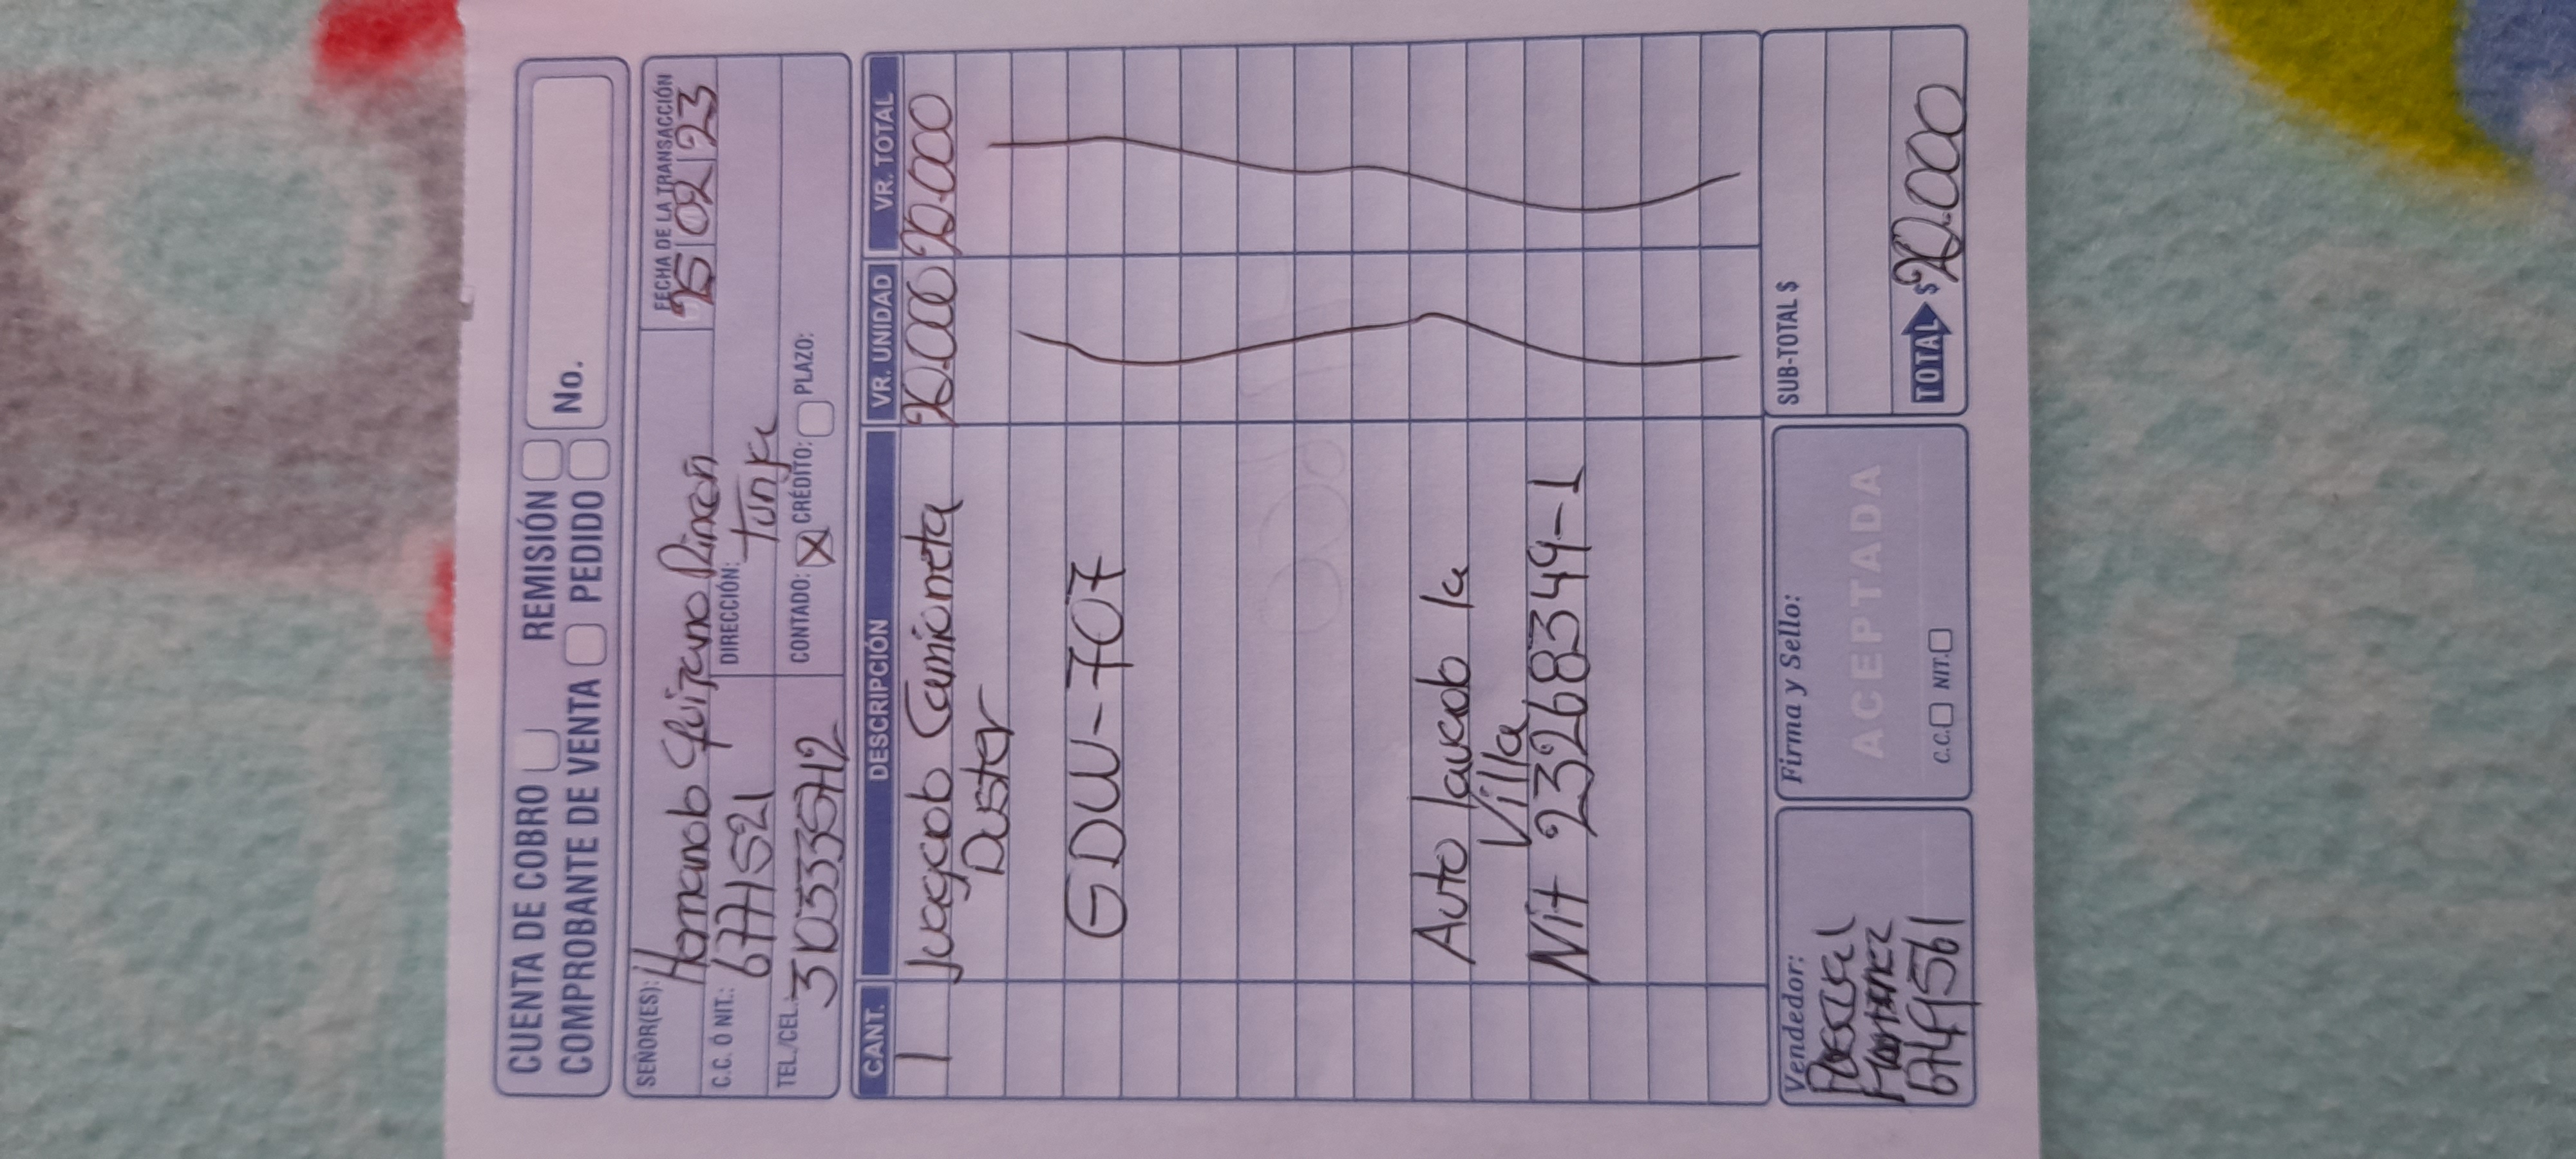 CUENTA DE COBRO REMISIÓN
COMPROBANTE DE VENTA PEDIDO No.
SEÑOR(ES): Homanob Quijano Rincon
FECHA DE LA TRANSACCIÓN
25 02 23
C.C. Ó NIT.: 6771521 DIRECCIÓN: Tunja
TEL./CEL.: 3103335712 CONTADO: X CRÉDITO: PLAZO:
CANT. DESCRIPCIÓN VR. UNIDAD VR. TOTAL
1 Camioneta 20.000 20.000
Duster
GDW-707
Auto lavado la
Villa
Nit 23268349-1
Vendedor:
Firma y Sello:
SUB-TOTAL $
ACEPTADA
C.C. NIT.
TOTAL $ 20.000